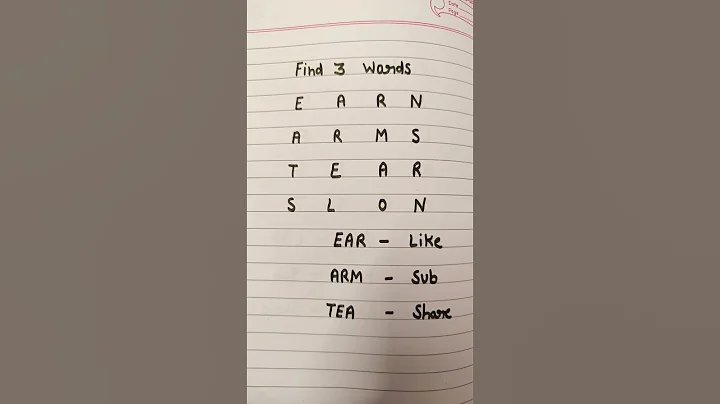 Find 3 Words
E A R N
A R M S
T E A R
S L O N
EAR - Like
ARM - Sub
TEA - Share